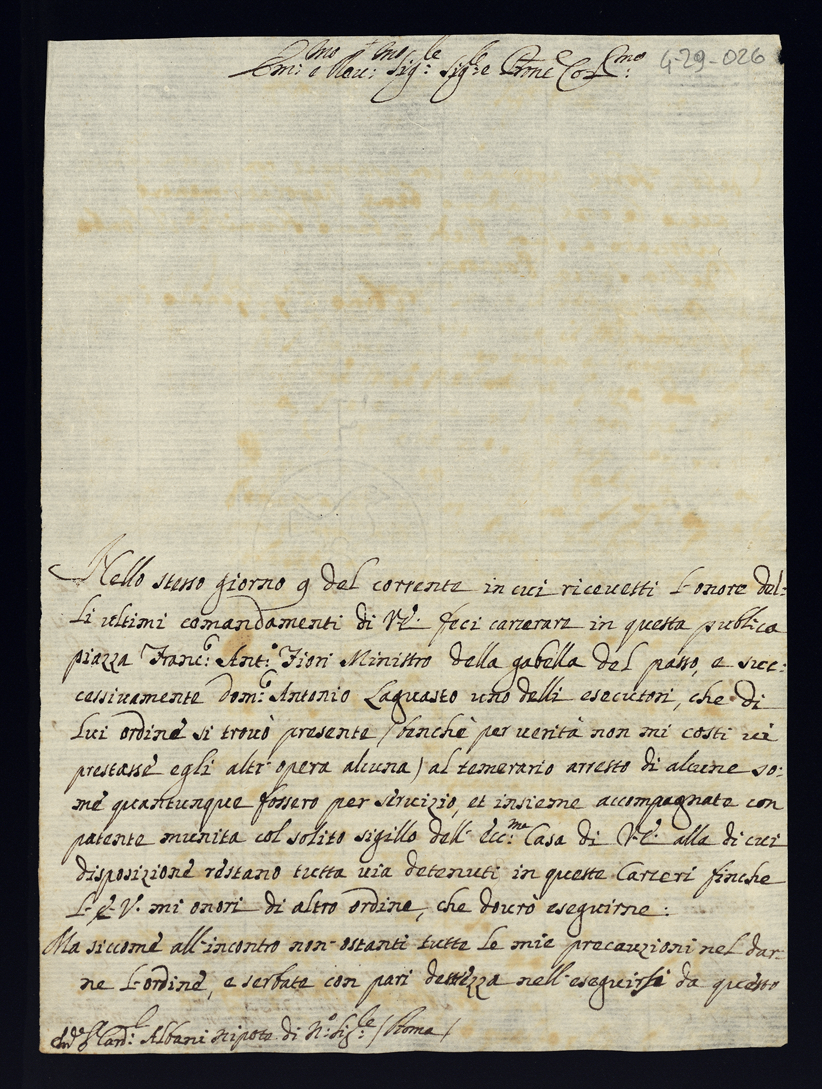 Em:mo e Reu:mo Sig:le Sig:le Prne Col:mo
4-29-026
Nello stesso giorno 9 del corrente in cui riceuetti l'onore del:
li ultimi comandamenti di V.E. feci carcerare in questa publica
piazza Franc:o Ant:o Fiori Ministro della gabella del passo, e suc:
cessiuamente dom:o Antonio Laguasto uno delli esecutori, che di
lui ordine si trouò presente (benche per uerità non mi costi ui
prestasse egli altr'opera alcuna) al temerario arresto di alcune so:
me quantunque fossero per seruizio, et insieme accompagnate con
patente munita col solito sigillo dell'Ecc:ma Casa di V.E. alla di cui
disposizione restano tutta uia detenuti in queste Carceri finche
L'E.V. mi onori di altro ordine, che dourò eseguirne:
Ma siccome all'incontro non ostanti tutte le mie precauzioni nel dar:
ne l'ordine, e serbate con pari destrezza nell'eseguirsi da questo
Card:l Albani Nipote di N:o Sig:le (Roma)